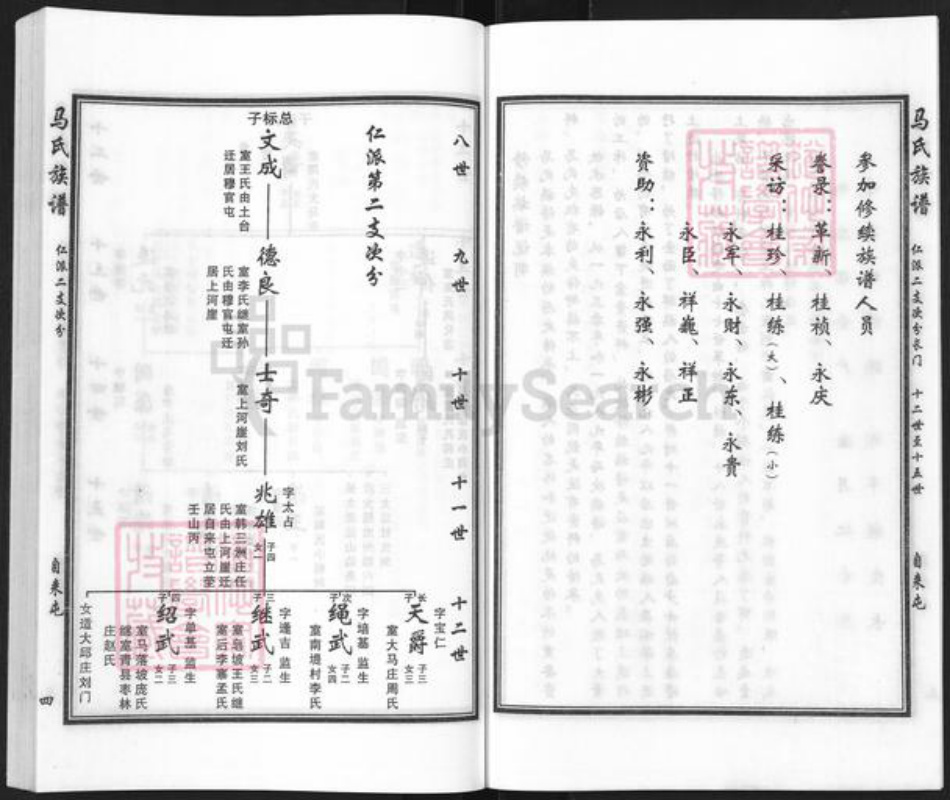 马氏族谱
仁派二支次分长门
十二世至十五世
自来屯
参加修续族谱人员
誊录：革新、桂祯、永庆
采访：桂珍、桂练（大）、桂练（小）
永军、永财、永东、永贵
永臣、祥巍、祥正
资助：永利、永强、永彬
八世
九世
十世
十一世
十二世
仁派第二支次分
总标子
文成
室王氏由土台
迁居穆官屯
德良
室李氏继室孙
氏由穆官屯迁
居上河崖
士奇
室上河崖刘氏
字太占
兆雄
子四
女一
室韩三洲庄任
氏由上河崖迁
居自来屯立茔
壬山丙
长子
天爵
字宝仁
子三
女三
室大马庄周氏
次子
绳武
字培基 监生
子二
女四
室南堤村李氏
三子
继武
字逢吉 监生
子二
女三
室乌坡王氏继
室后李寨孟氏
四子
绍武
字单基 监生
子三
女二
室马落坡庞氏
继室青县枣林
庄赵氏
女适大邱庄刘门
马氏族谱
仁派二支次分
自来屯
四
FamilySearch